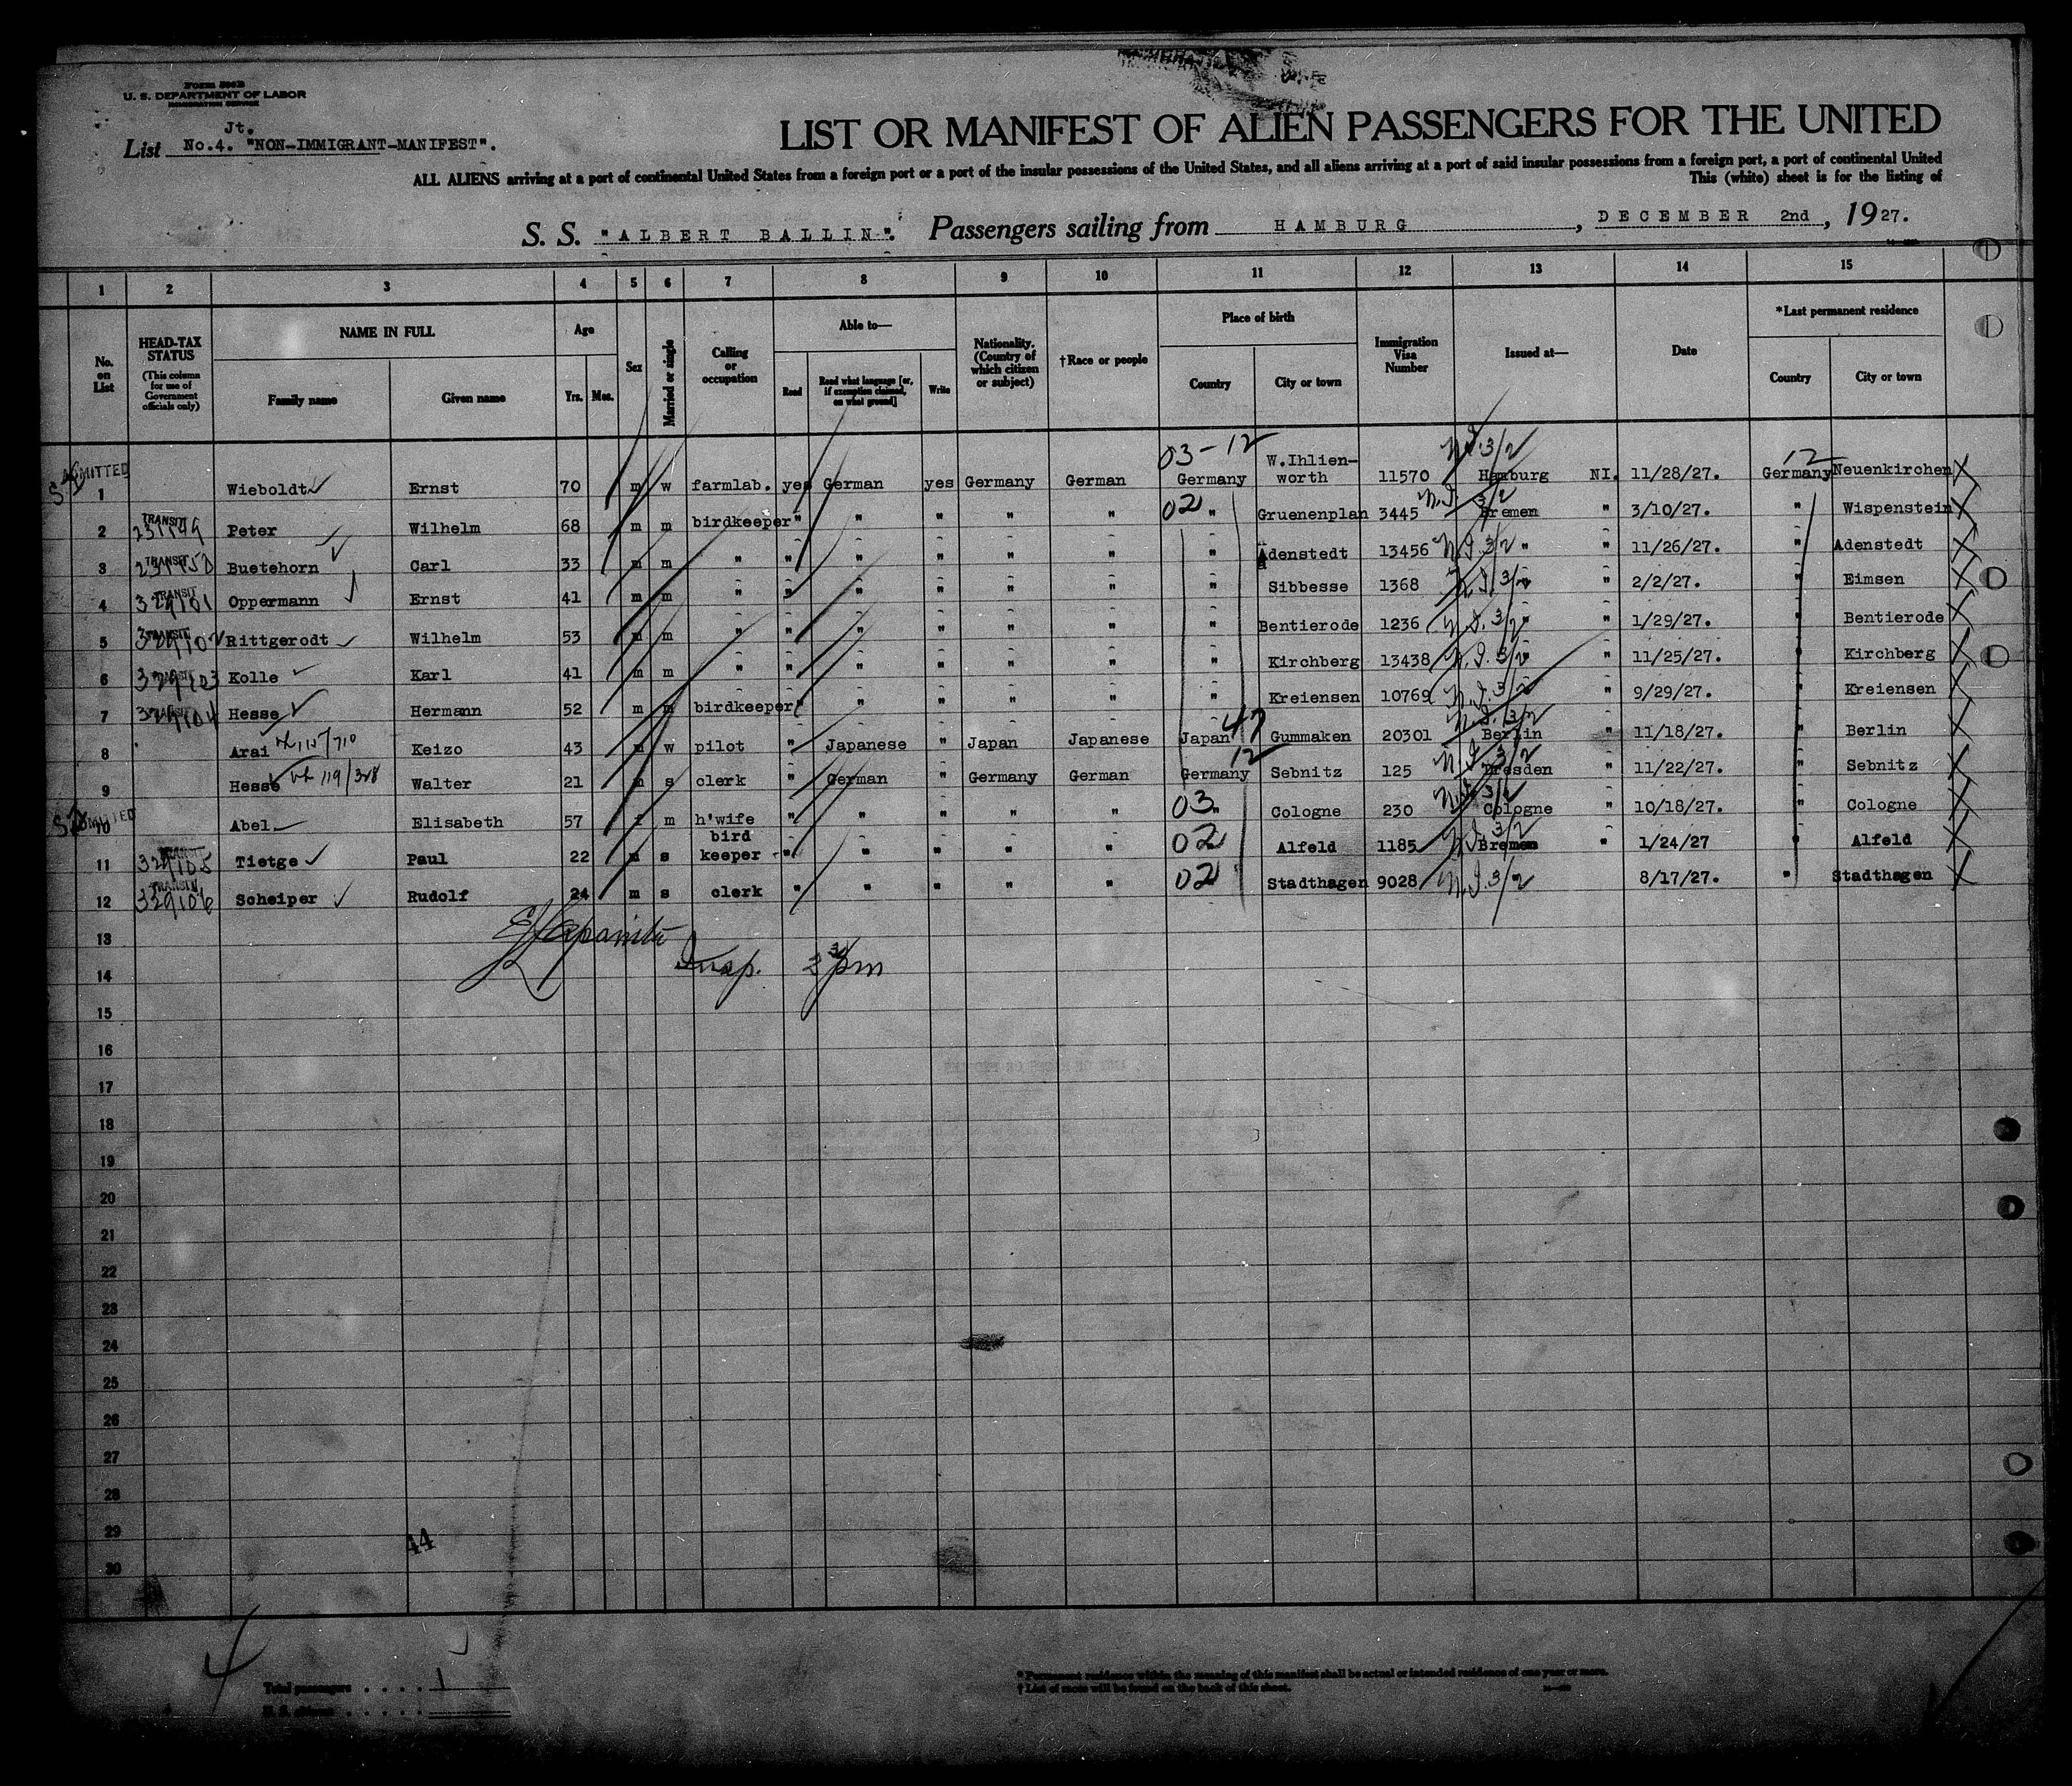 Form 500B
U. S. DEPARTMENT OF LABOR
IMMIGRATION SERVICE
Jt.
List No.4. "NON-IMMIGRANT-MANIFEST".
LIST OR MANIFEST OF ALIEN PASSENGERS FOR THE UNITED
ALL ALIENS arriving at a port of continental United States from a foreign port or a port of the insular possessions of the United States, and all aliens arriving at a port of said insular possessions from a foreign port, a port of continental United
This (white) sheet is for the listing of
S. S. "ALBERT BALLIN". Passengers sailing from HAMBURG, DECEMBER 2nd, 1927.
1 2 3 4 5 6 7 8 9 10 11 12 13 14 15
No. on List
HEAD-TAX STATUS (This column for use of Government officials only)
NAME IN FULL Family name Given name
Age Yrs. Mos.
Sex
Married or single
Calling or occupation
Able to— Read Read what language [or, if exemption claimed, on what ground] Write
Nationality. (Country of which citizen or subject)
†Race or people
Place of birth Country City or town
Immigration Visa Number
Issued at—
Date
*Last permanent residence Country City or town
03-12 N.I. 3/2 12
ADMITTED 1 Wieboldt Ernst 70 m w farmlab. yes German yes Germany German Germany W.Ihlien-worth 11570 Hamburg NI. 11/28/27. Germany Neuenkirchen X
2 TRANSIT Peter Wilhelm 68 m m birdkeeper " " " " " 02 " Gruenenplan 3445 N.I. 3/2 Bremen " 3/10/27. " Wispenstein X
3 TRANSIT Buetehorn Carl 33 m m " " " " " " " Adenstedt 13456 N.I. 3/2 " " 11/26/27. " Adenstedt X
4 TRANSIT 329101 Oppermann Ernst 41 m m " " " " " " " Sibbesse 1368 N.I. 3/2 " " 2/2/27. " Eimsen X
5 TRANSIT 329102 Rittgerodt Wilhelm 53 m m " " " " " " " Bentierode 1236 N.I. 3/2 " " 1/29/27. " Bentierode X
6 TRANSIT 329103 Kolle Karl 41 m m " " " " " " " Kirchberg 13438 N.I. 3/2 " " 11/25/27. " Kirchberg X
7 TRANSIT 329104 Hesse Hermann 52 m m birdkeeper " " " " " " Kreiensen 10769 N.I. 3/2 " 9/29/27. " Kreiensen X
8 Arai Keizo 43 m w pilot " Japanese " Japan Japanese Japan 47 Gummaken 20301 N.I. 3/2 Berlin " 11/18/27. " Berlin X
9 Hesse 119/328 Walter 21 m s clerk " German " Germany German Germany 12 Sebnitz 125 N.I. 3/2 Dresden " 11/22/27. " Sebnitz X
ADMITTED 10 Abel Elisabeth 57 f m h'wife " " " " " 03 " Cologne 230 N.I. 3/2 Cologne " 10/18/27. " Cologne X
11 TRANSIT 329105 Tietge Paul 22 m s bird keeper " " " " " 02 " Alfeld 1185 N.I. 3/2 Bremen " 1/24/27 " Alfeld X
12 TRANSIT 329106 Scheiper Rudolf 24 m s clerk " " " " " 02 " Stadthagen 9028 N.I. 3/2 8/17/27. " Stadthagen X
13
Insp.
14
15
16
17
18
19
20
21
22
23
24
25
26
27
28
29
44
30
4
Total passengers . . . . 1
U. S. citizens . . . . .
* Permanent residence within the meaning of this manifest shall be actual or intended residence of one year or more.
† List of races will be found on the back of this sheet.